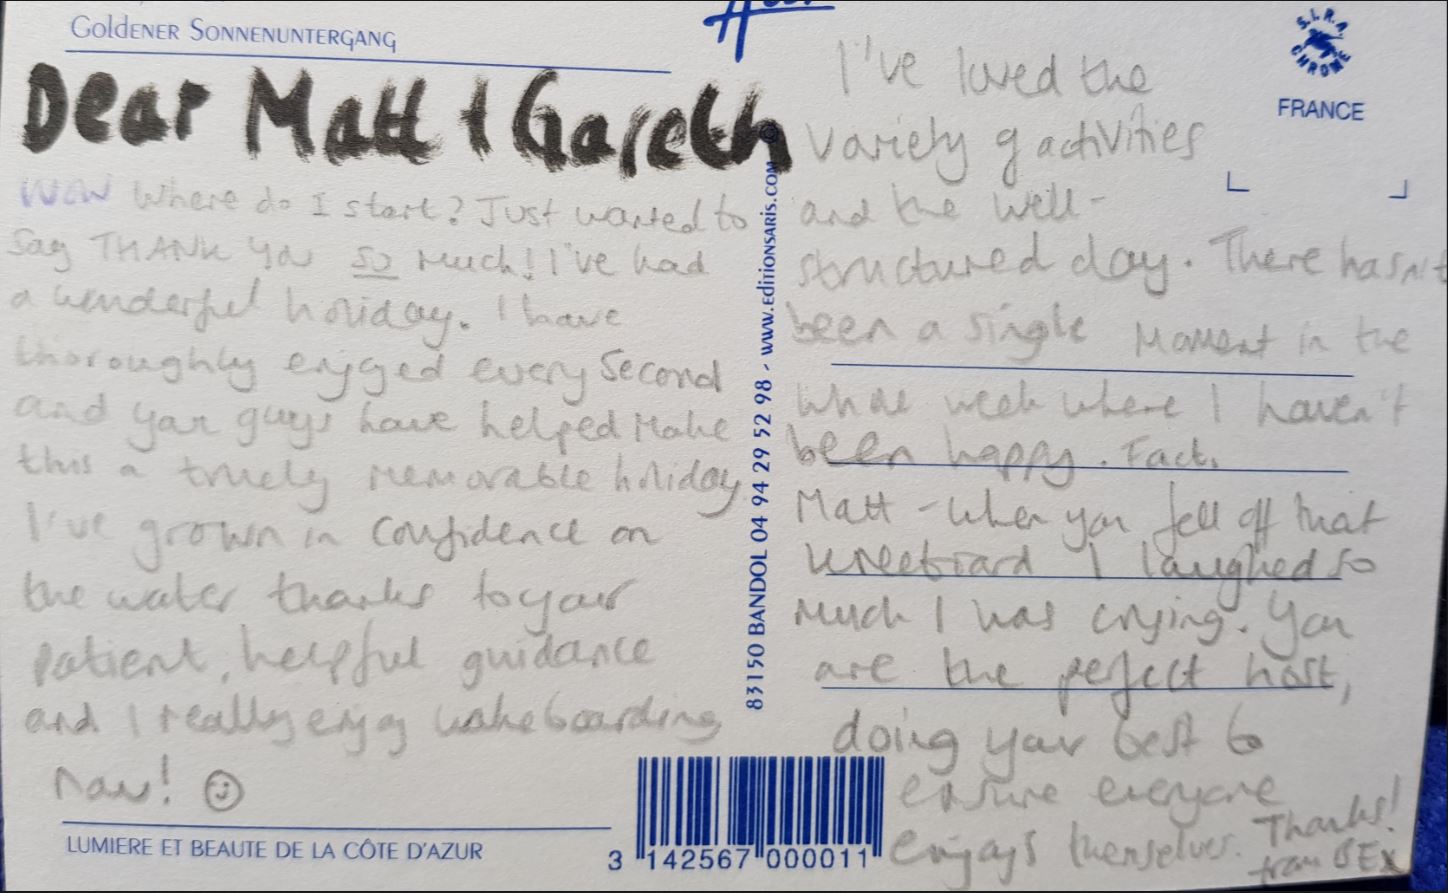 Goldener Sonnenuntergang
Dear Matt & Gareth
WOW Where do I start? Just wanted to
say THANK YOU so much! I've had
a wonderful holiday. I have
thoroughly enjoyed every second
and you guys have helped make
this a truely memorable holiday
I've grown in confidence on
the water thanks to your
patient, helpful guidance
and I really enjoy wakeboarding
now! ☺
LUMIERE ET BEAUTE DE LA CÔTE D'AZUR
83150 BANDOL 04 94 29 52 98 - www.editionsaris.com
3 142567 000011
S.I.R.A.
CHROME
FRANCE
I've loved the
variety of activities
and the well-
structured day. There hasn't
been a single moment in the
whole week where I haven't
been happy. Fact.
Matt - when you fell off that
kneeboard I laughed so
much I was crying. You
are the perfect host,
doing your best to
ensure everyone
enjoys themselves. Thanks!
from BEX